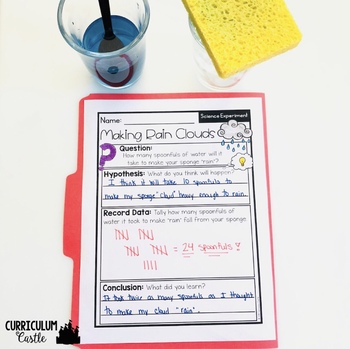 Name:
Science Experiment
Making Rain Clouds
Question:
How many spoonfuls of water will it
take to make your sponge "rain"?
Hypothesis: What do you think will happen?
I think it will take 10 spoonfuls to
make my sponge "cloud" heavy enough to rain.
Record Data: Tally how many spoonfuls of
water it took to make "rain" fall from your sponge.
= 24 spoonfuls!
Conclusion: What did you learn?
It took twice as many spoonfuls as I thought
to make my cloud "rain".
CURRICULUM
Castle